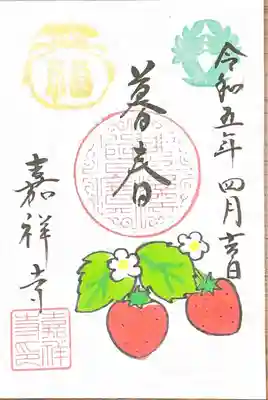 令和五年四月吉日
暮春
嘉祥寺
嘉祥寺印